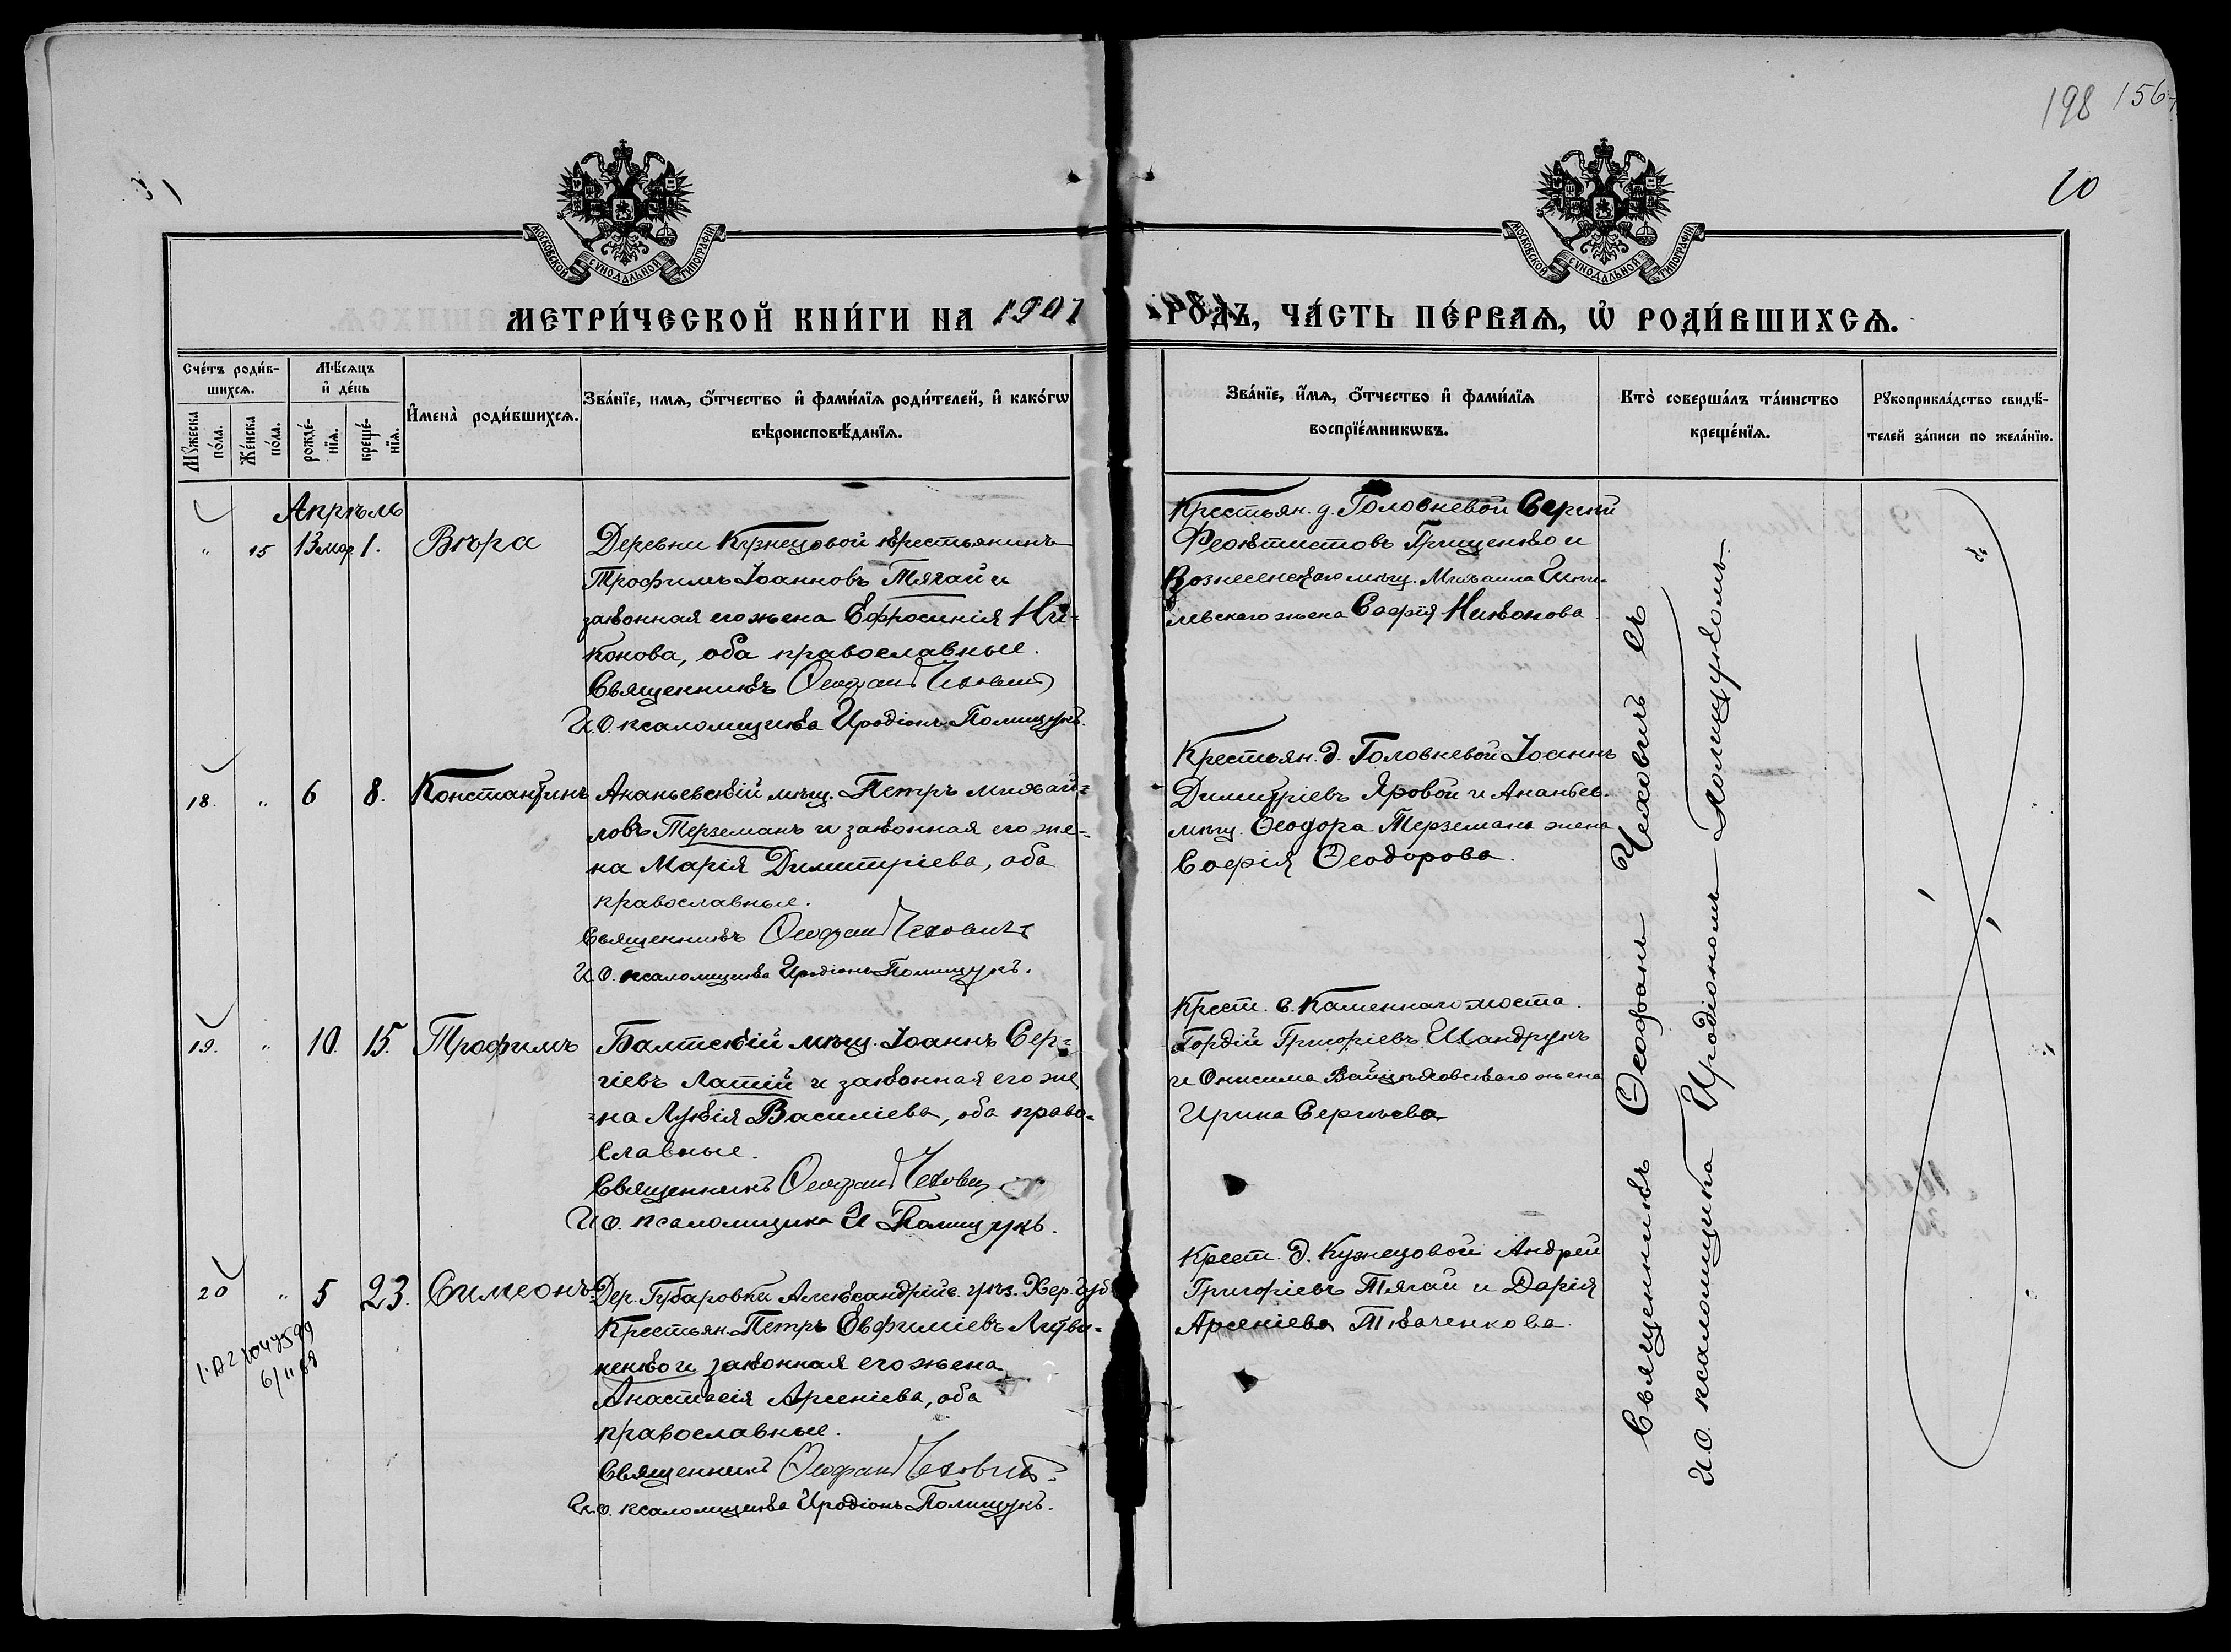 198 156
10
МОСКОВСКОЙ СѴНОДАЛЬНОЙ ТИПОГРАФІИ
МОСКОВСКОЙ СѴНОДАЛЬНОЙ ТИПОГРАФІИ
МЕТРИ́ЧЕСКОЙ КНИ́ГИ НА 1901 ГО́ДЪ, ЧА́СТЬ ПЕ́РВАѦ, Ѡ РОДИ́ВШИХСѦ.
Сче́тъ роди́в-
шихся.
Мѣ́сяцъ
и де́нь
Мꙋ́жеска
по́ла.
Же́нска
по́ла.
рожде́-
нїя.
креще́-
нїя.
И҆мена̀ роди́вшихся.
Зва́нїе, имя, ѻ҆́тчество и҆ фами́лїя роди́телей, и҆ како́гѡ
вѣроисповѣ́данїя.
Зва́нїе, и҆́мя, ѻ҆́тчество и҆ фами́лїя
воспрїе́мникѡвъ.
Кто̀ соверша́лъ та́инство
креще́нїя.
Рꙋкоприкла́дство свидѣ́-
телей за́писи по жела́нїю.
Апрѣль
" 15 13 мар 1. Вѣра
Деревни Кузнецовой крестьянинъ
Трофимъ Іоанновъ Тягай и
законная его жена Ефросинія Ни-
конова, оба православные.
Священникъ Ѳеофанъ Чеховичъ
И.О. псаломщика Иродіонъ Полищукъ.
Крестьян. д. Головневой Сергій
Феоктистовъ Грищенко и
Вознесенскаго мѣщ. Михаила
левскаго жена Софія Никонова.
18. " 6 8. Константинъ
Ананьевскій мѣщ. Петръ Михай-
ловъ Терземанъ и законная его же-
на Марія Димитріева, оба
православные.
Священникъ Ѳеофанъ Чеховичъ
И.О. псаломщика Иродіонъ Полищукъ.
Крестьян. д. Головневой Іоаннъ
Димитріевъ Яровой и Ананьев.
мѣщ. Ѳеодора Терземана жена
Софія Ѳеодорова.
19. " 10. 15. Трофимъ
Балтскій мѣщ. Іоаннъ Сер-
гіевъ Латій и законная его же
-на Лукія Василіева, оба право-
славные.
Священникъ Ѳеофанъ Чеховичъ
И.О. псаломщика И Полищукъ.
Крест. с. Каменнаго моста
Гордій Григоріевъ Шандрукъ
и Онисима Войцѣховскаго жена
Ирина Сергѣева
20 " 5 23. Симеонъ
Дер. Губаровки Александрійс. уѣз. Хер. губ
Крестьян. Петръ Евфиміевъ Литви-
ненко и законная его жена
Анастасія Арсеніева, оба
православные.
Священникъ Ѳеофанъ Чеховичъ
И.О. псаломщика Иродіонъ Полищукъ.
Крест. д. Кузнецовой Андрей
Григоріевъ Тягай и Дарія
Арсеніева Ткаченкова.
Священникъ Ѳеофанъ Чеховичъ съ
И.О. псаломщика Иродіономъ Полищукомъ.